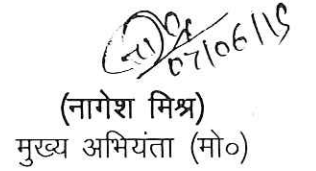 07/06/19
(नागेश मिश्र)
मुख्य अभियंता (मो०)